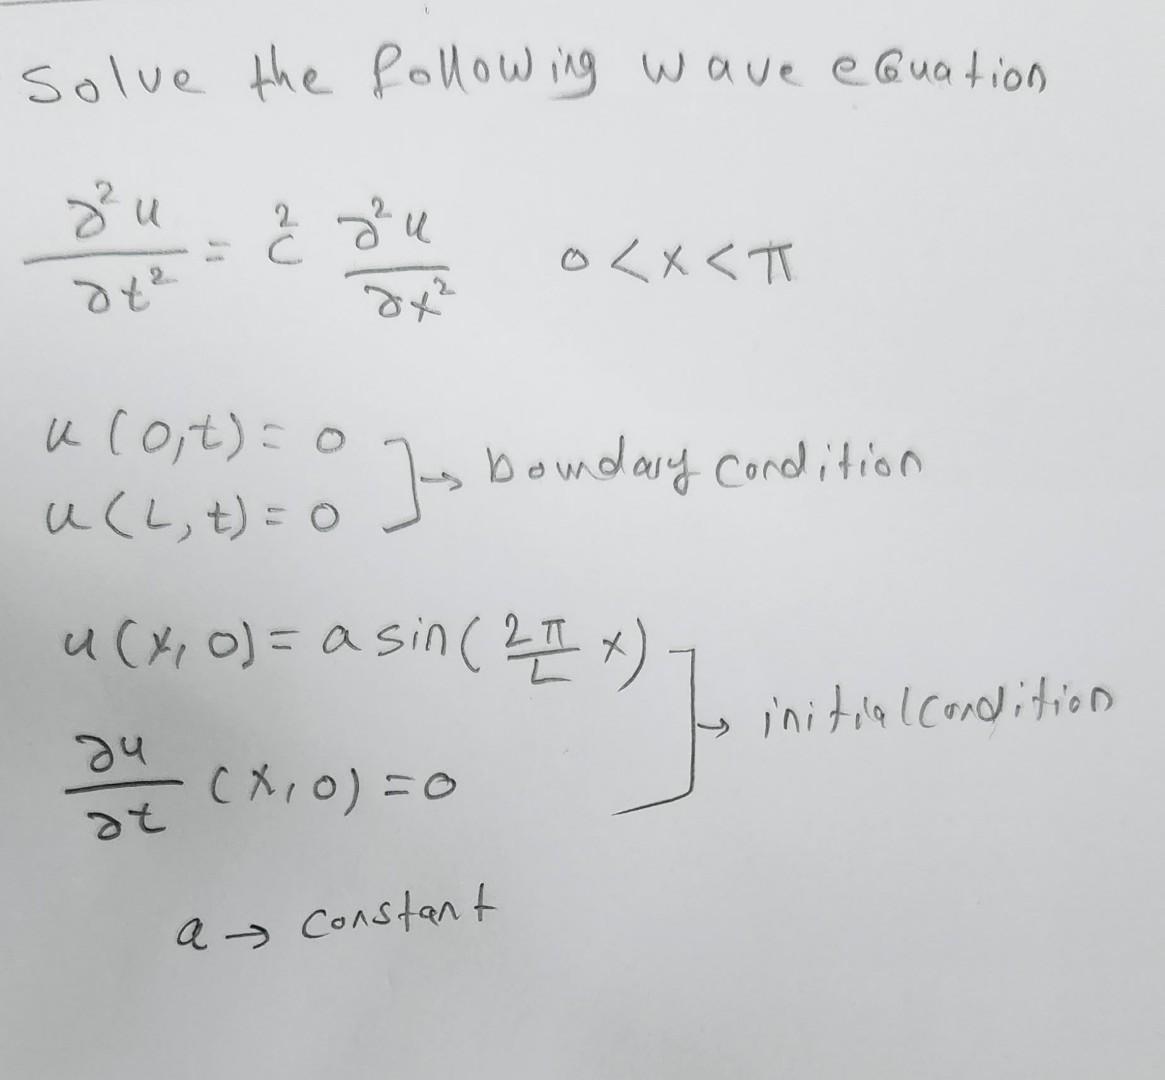 Solve the following wave eQuation
∂²u/∂t² = c² ∂²u/∂x² 0<x<π
u(0,t)=0
u(L,t)=0 → boundary condition
u(x,0)= a sin(2π/L x)
→ initial condition
∂u/∂t (x,0)=0
a → constant